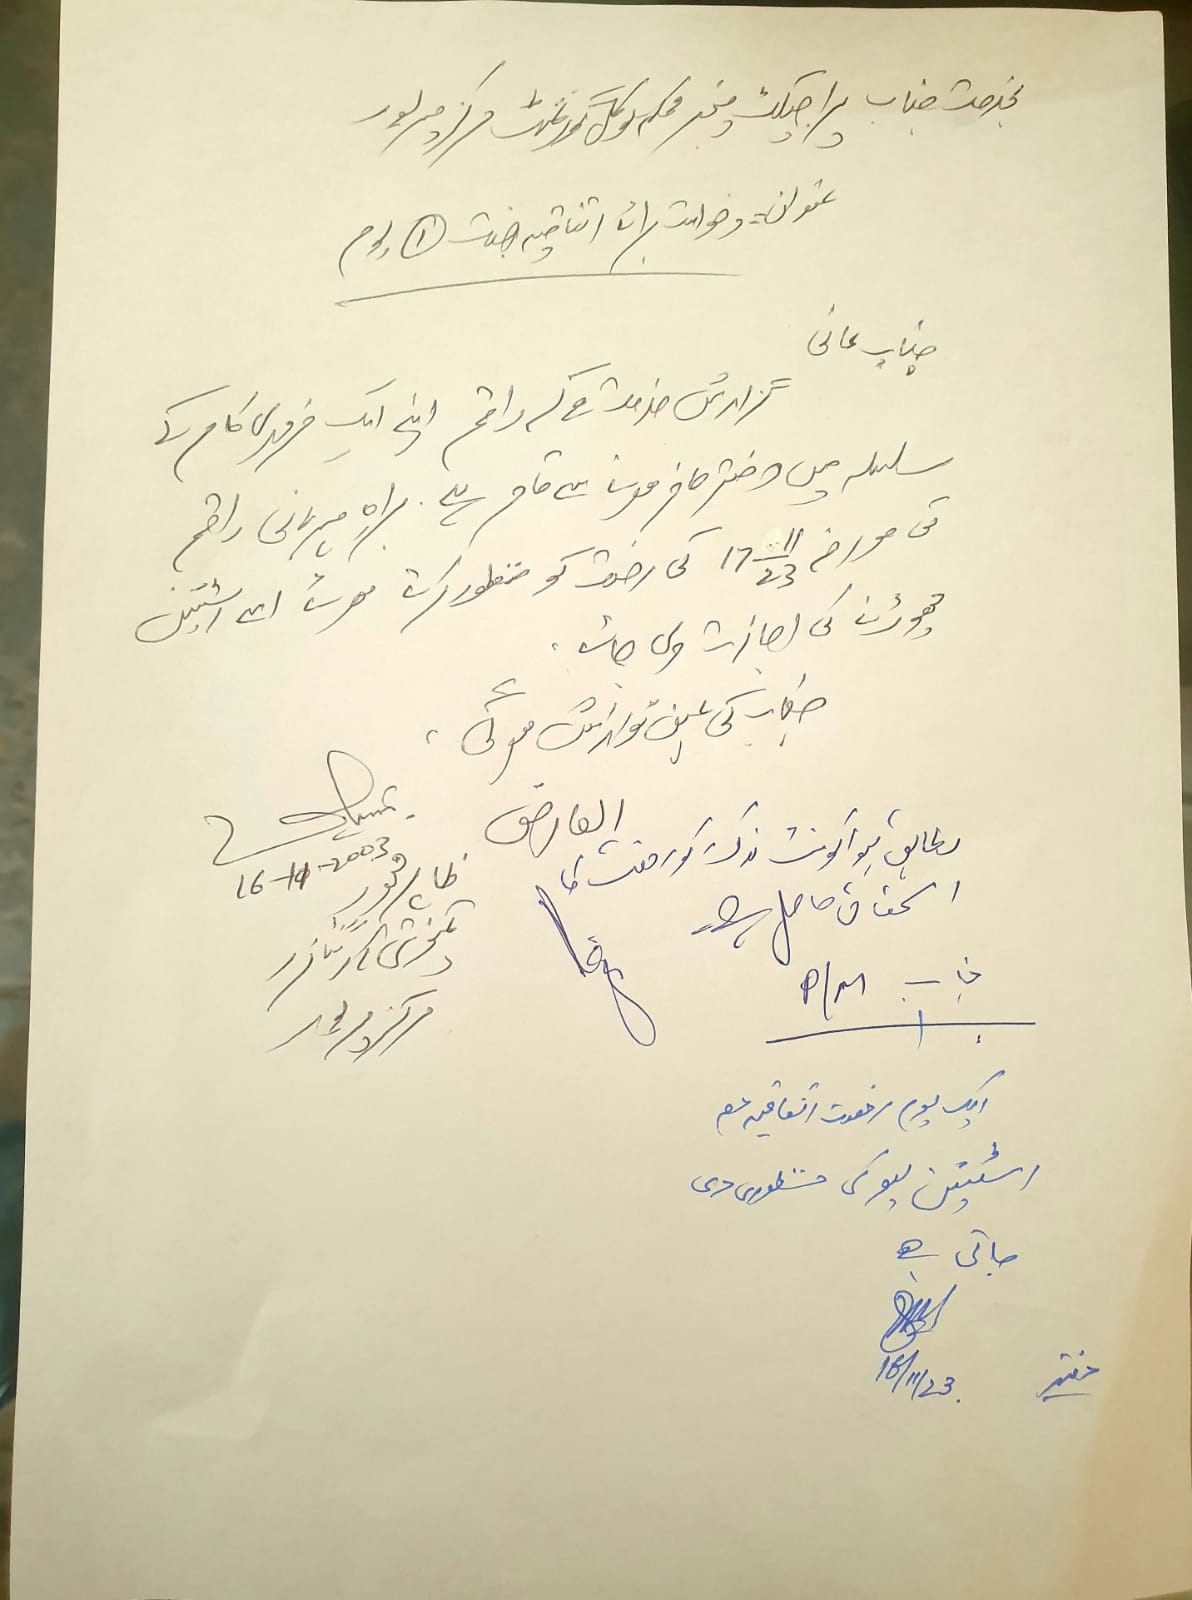 بخدمت جناب پراجیکٹ منیجر محکمہ لوکل گورنمنٹ مرکز میرپور
عنوان:۔ درخواست برائے اتفاقیہ رخصت ① یوم
جناب عالی
گزارش خدمت ہے کہ راقم اپنے ایک ضروری کام کے
سلسلہ میں دفتر حاضر ہونے سے قاصر ہے۔ براہ مہربانی راقم
کی مورخہ 17-11-23 کی رخصت کو منظور کرتے ہوئے اسے اسٹیشن
چھوڑنے کی اجازت دی جائے۔
جناب کی عین نوازش ہو گی۔
العارض
16-11-2003
مرکز میرپور
بمطابق لیو اکونٹ مذکور رخصت کا
استحقاق حاصل ہے
جناب P/M
ایک یوم رخصت اتفاقیہ معہ
اسٹیشن لیو کی منظوری دی
جاتی ہے
16/11/23.